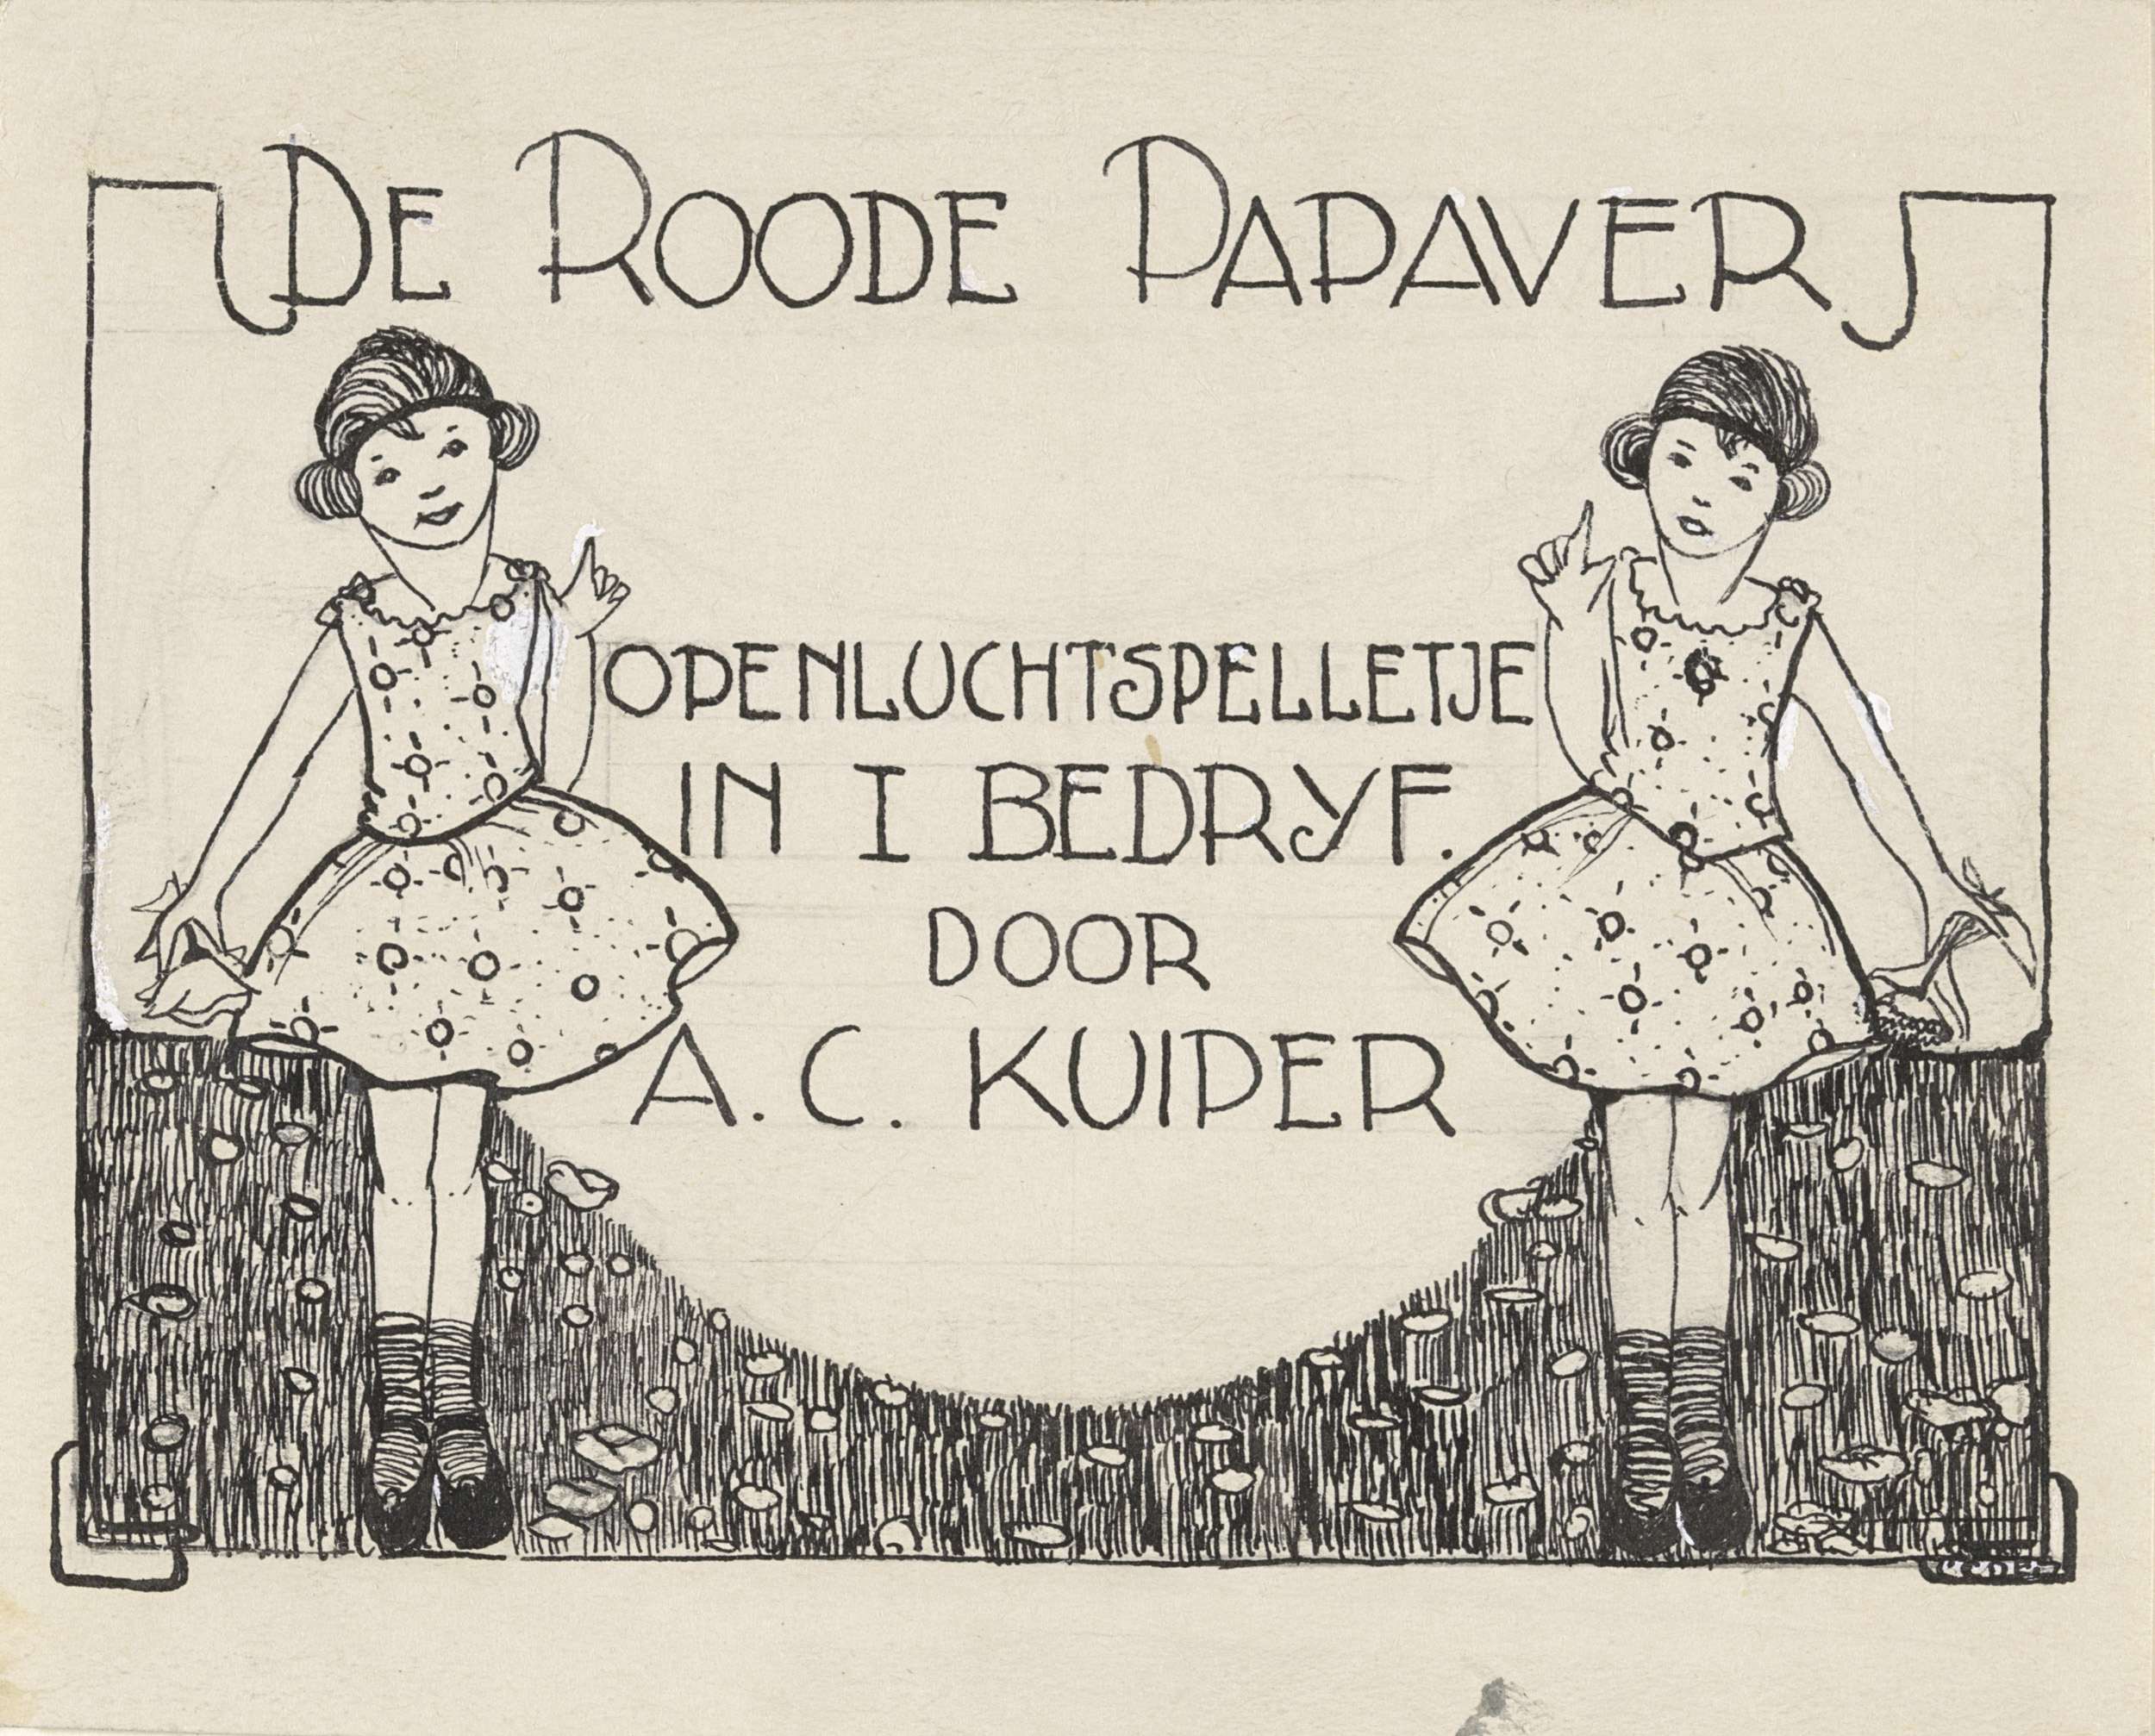 DE ROODE PAPAVER
OPENLUCHTSPELLETJE
IN I BEDRYF.
DOOR
A. C. KUIPER